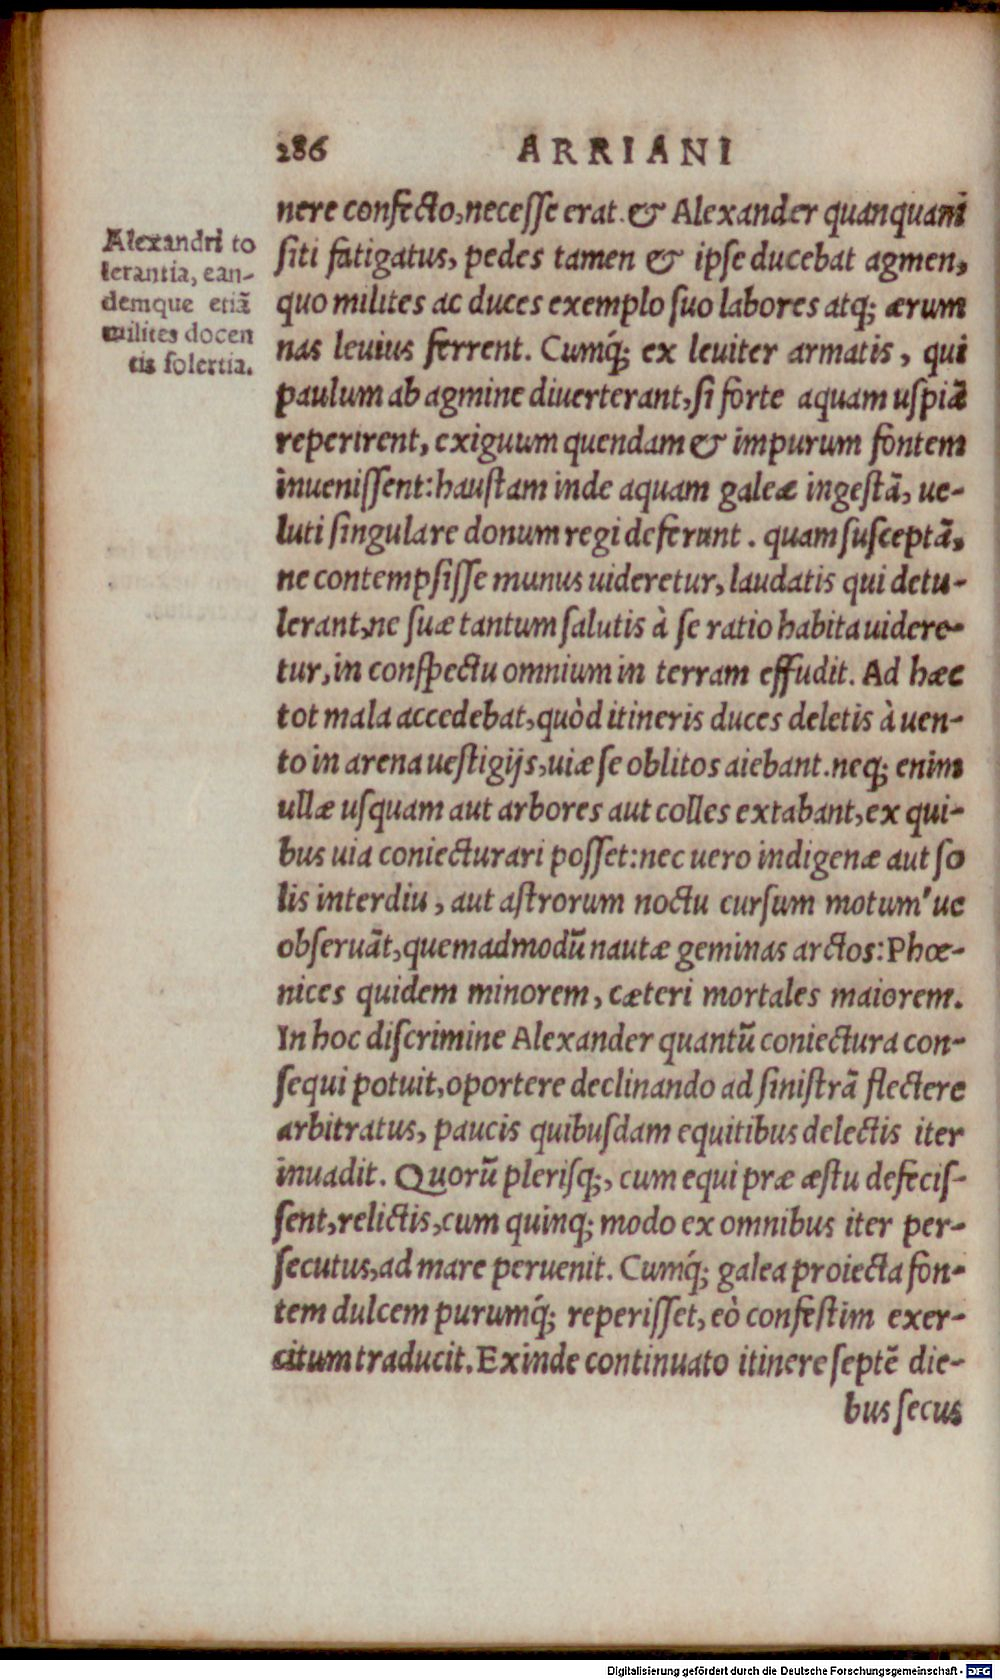 286 ARRIANI
nere confecto, necesse erat. & Alexander quanquam
siti fatigatus, pedes tamen & ipse ducebat agmen,
quo milites ac duces exemplo suo labores atq; ærum
nas leuius ferrent. Cumq́; ex leuiter armatis, qui
paulum ab agmine diuerterant, si forte aquam uspiã
reperirent, exiguum quendam & impurum fontem
inuenissent: haustam inde aquam galeæ ingestã, ue-
luti singulare donum regi deferunt. quam susceptã,
ne contempsisse munus uideretur, laudatis qui detu-
lerant, ne suæ tantum salutis à se ratio habita uidere-
tur, in conspectu omnium in terram effudit. Ad hæc
tot mala accedebat, quòd itineris duces deletis à uen-
to in arena uestigijs, uiæ se oblitos aiebant. neq; enim
ullæ usquam aut arbores aut colles extabant, ex qui-
bus uia coniecturari posset: nec uero indigenæ aut so
lis interdiu, aut astrorum noctu cursum motum'ue
obseruãt, quemadmodũ nautæ geminas arctos: Phœ-
nices quidem minorem, cæteri mortales maiorem.
In hoc discrimine Alexander quantũ coniectura con-
sequi potuit, oportere declinando ad sinistrã flectere
arbitratus, paucis quibusdam equitibus delectis iter
inuadit. Quorũ plerisq;, cum equi præ æstu defecis-
sent, relictis, cum quinq; modo ex omnibus iter per-
secutus, ad mare peruenit. Cumq́; galea proiecta fon-
tem dulcem purumq́; reperisset, eò confestim exer-
citum traducit. Exinde continuato itinere septẽ die-
bus secus
Alexandri to
lerantia, ean-
demque etiã
milites docen
tis solertia.
Digitalisierung gefördert durch die Deutsche Forschungsgemeinschaft - DFG